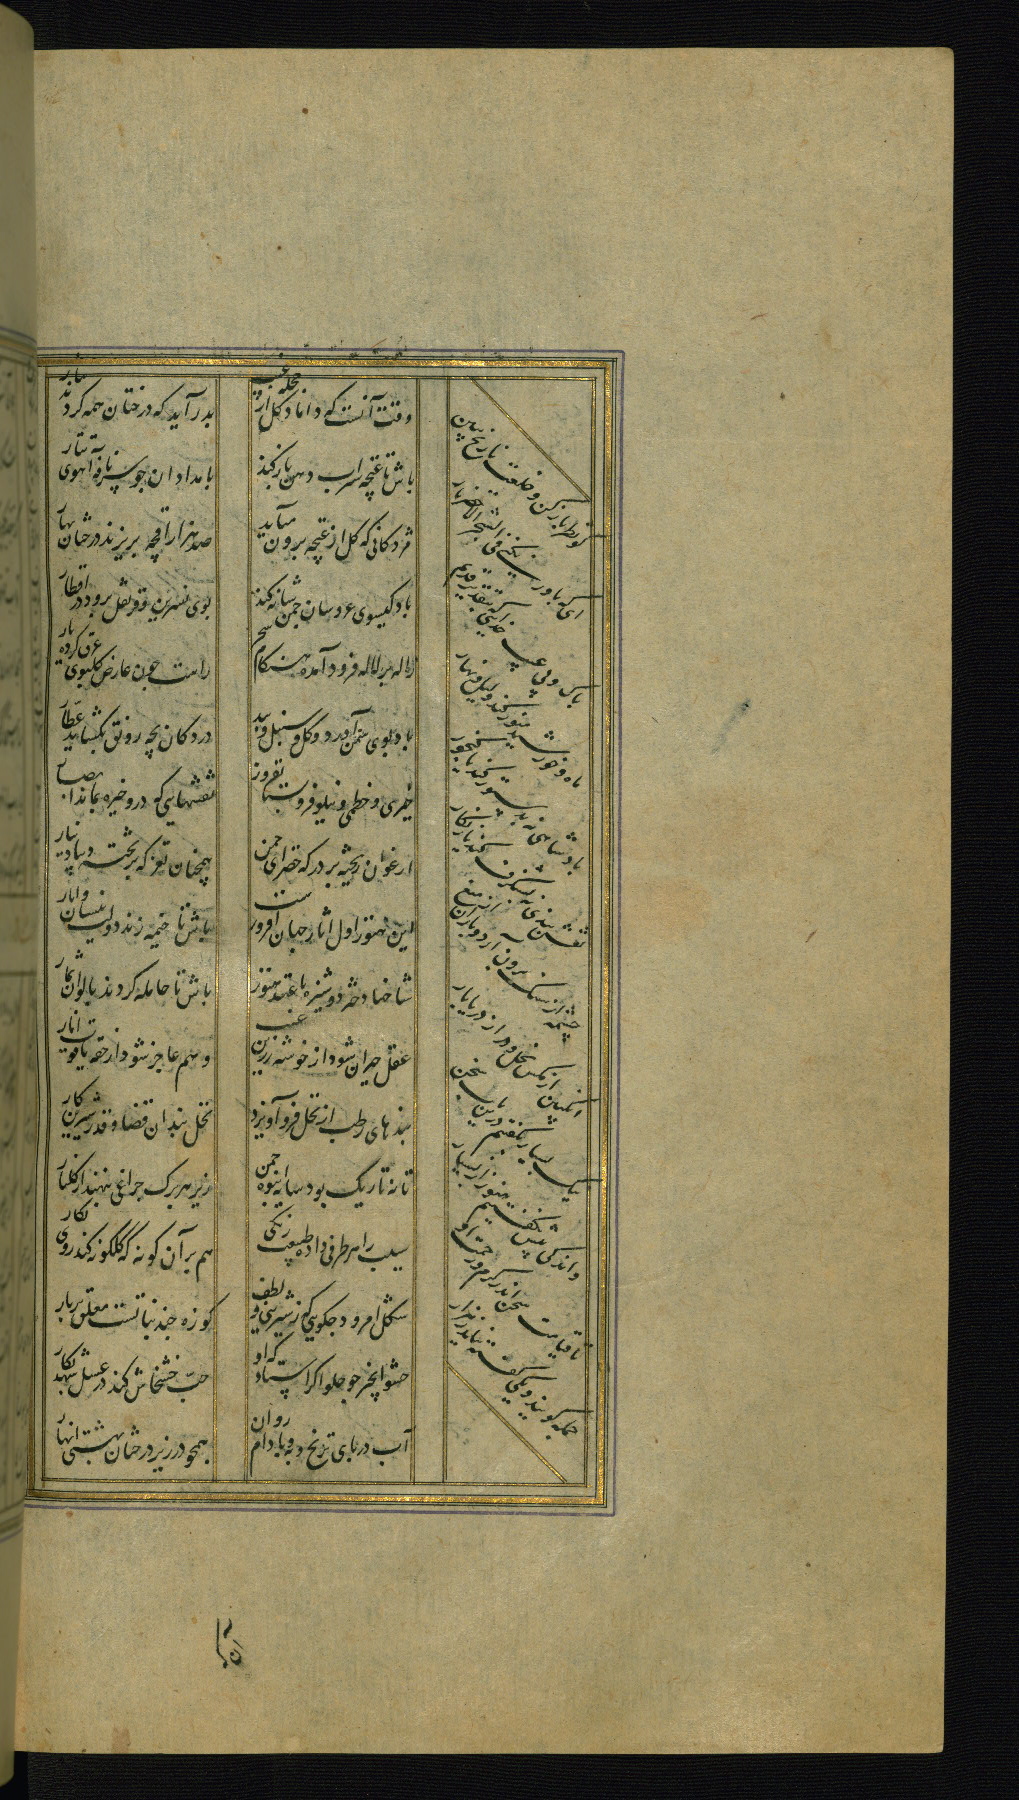 وقت آنست که داماد گل از حجله غیب بدر آید که درختان همه کردند نثار
باش تا غنچه سیراب دهن باز کند بامدادان چو سر نافه آهوی تتار
مژدگانی که گل از غنچه برون میآید صد هزار اقچه بریزند درختان بهار
باد گیسوی عروسان چمن شانه کند بوی نسرین و قرنفل برود در اقطار
ژاله بر لاله فرود آمده هنگام سحر راست چون عارض گلبوی عرق کرده یار
باد بوی سمن آورد و گل و سنبل و بید در دکان بچه رونق بگشاید عطار
خیری و خطمی و نیلوفر و بستان افروز نقشهایی که درو خیره بماند ابصار
ارغوان ریخته بر درگه خضرای چمن همچنان نغز که بر تخته دیبا دینار
این هنوز اول آثار جهان افروزست باش تا خیمه زند دولت نیسان و ایار
شاخها دختر دوشیزه باغند هنوز باش تا حامله گردند بالوان ثمار
عقل حیران شود از خوشه زرین عنب وهم عاجز شود از حقه یاقوت انار
بندهای رطب از نخل فرو آویزد نخل بندان قضا و قدر شیرین کار
تا نه تاریک بود سایه انبوه چمن زیر هر برگ چراغی بنهند از گلنار
سیب را هر طرفی داده طبیعت رنگی هم بر آن گونه که گلگونه کند روی نگار
شکل امرود چو گویی که ز شیرینی و لطف کوزه چند نباتست معلق بر بار
حشو انجیر چو حلواگر استاد که او حب خشخاش کند در عسل شهد بکار
آب در پای ترنج و به و بادام روان همچو در زیر درختان بهشتی انهار
گو نظر باز کن و خلقت نارنج ببین
ای که باور نکنی فی الشجر الاخضر نار
پاک و بی عیب خدایی که بتقدیر قدیم
ماه و خورشید منور کند و لیل و نهار
پادشاهی نه بدستور کند یا گنجور
نقشبندی نه بشنگرف کند یا زنگار
چشمه از سنگ برون آرد و باران از میغ
انگبین از مگس نحل و در از دریا بار
نیک بسیار بگفتیم درین باب سخن
و اندکی بیش نگفتیم هنوز از بسیار
تا قیامت سخن اندر کرم و رحمت او
جمله گویند و یکی گفته نیاید ز هزار